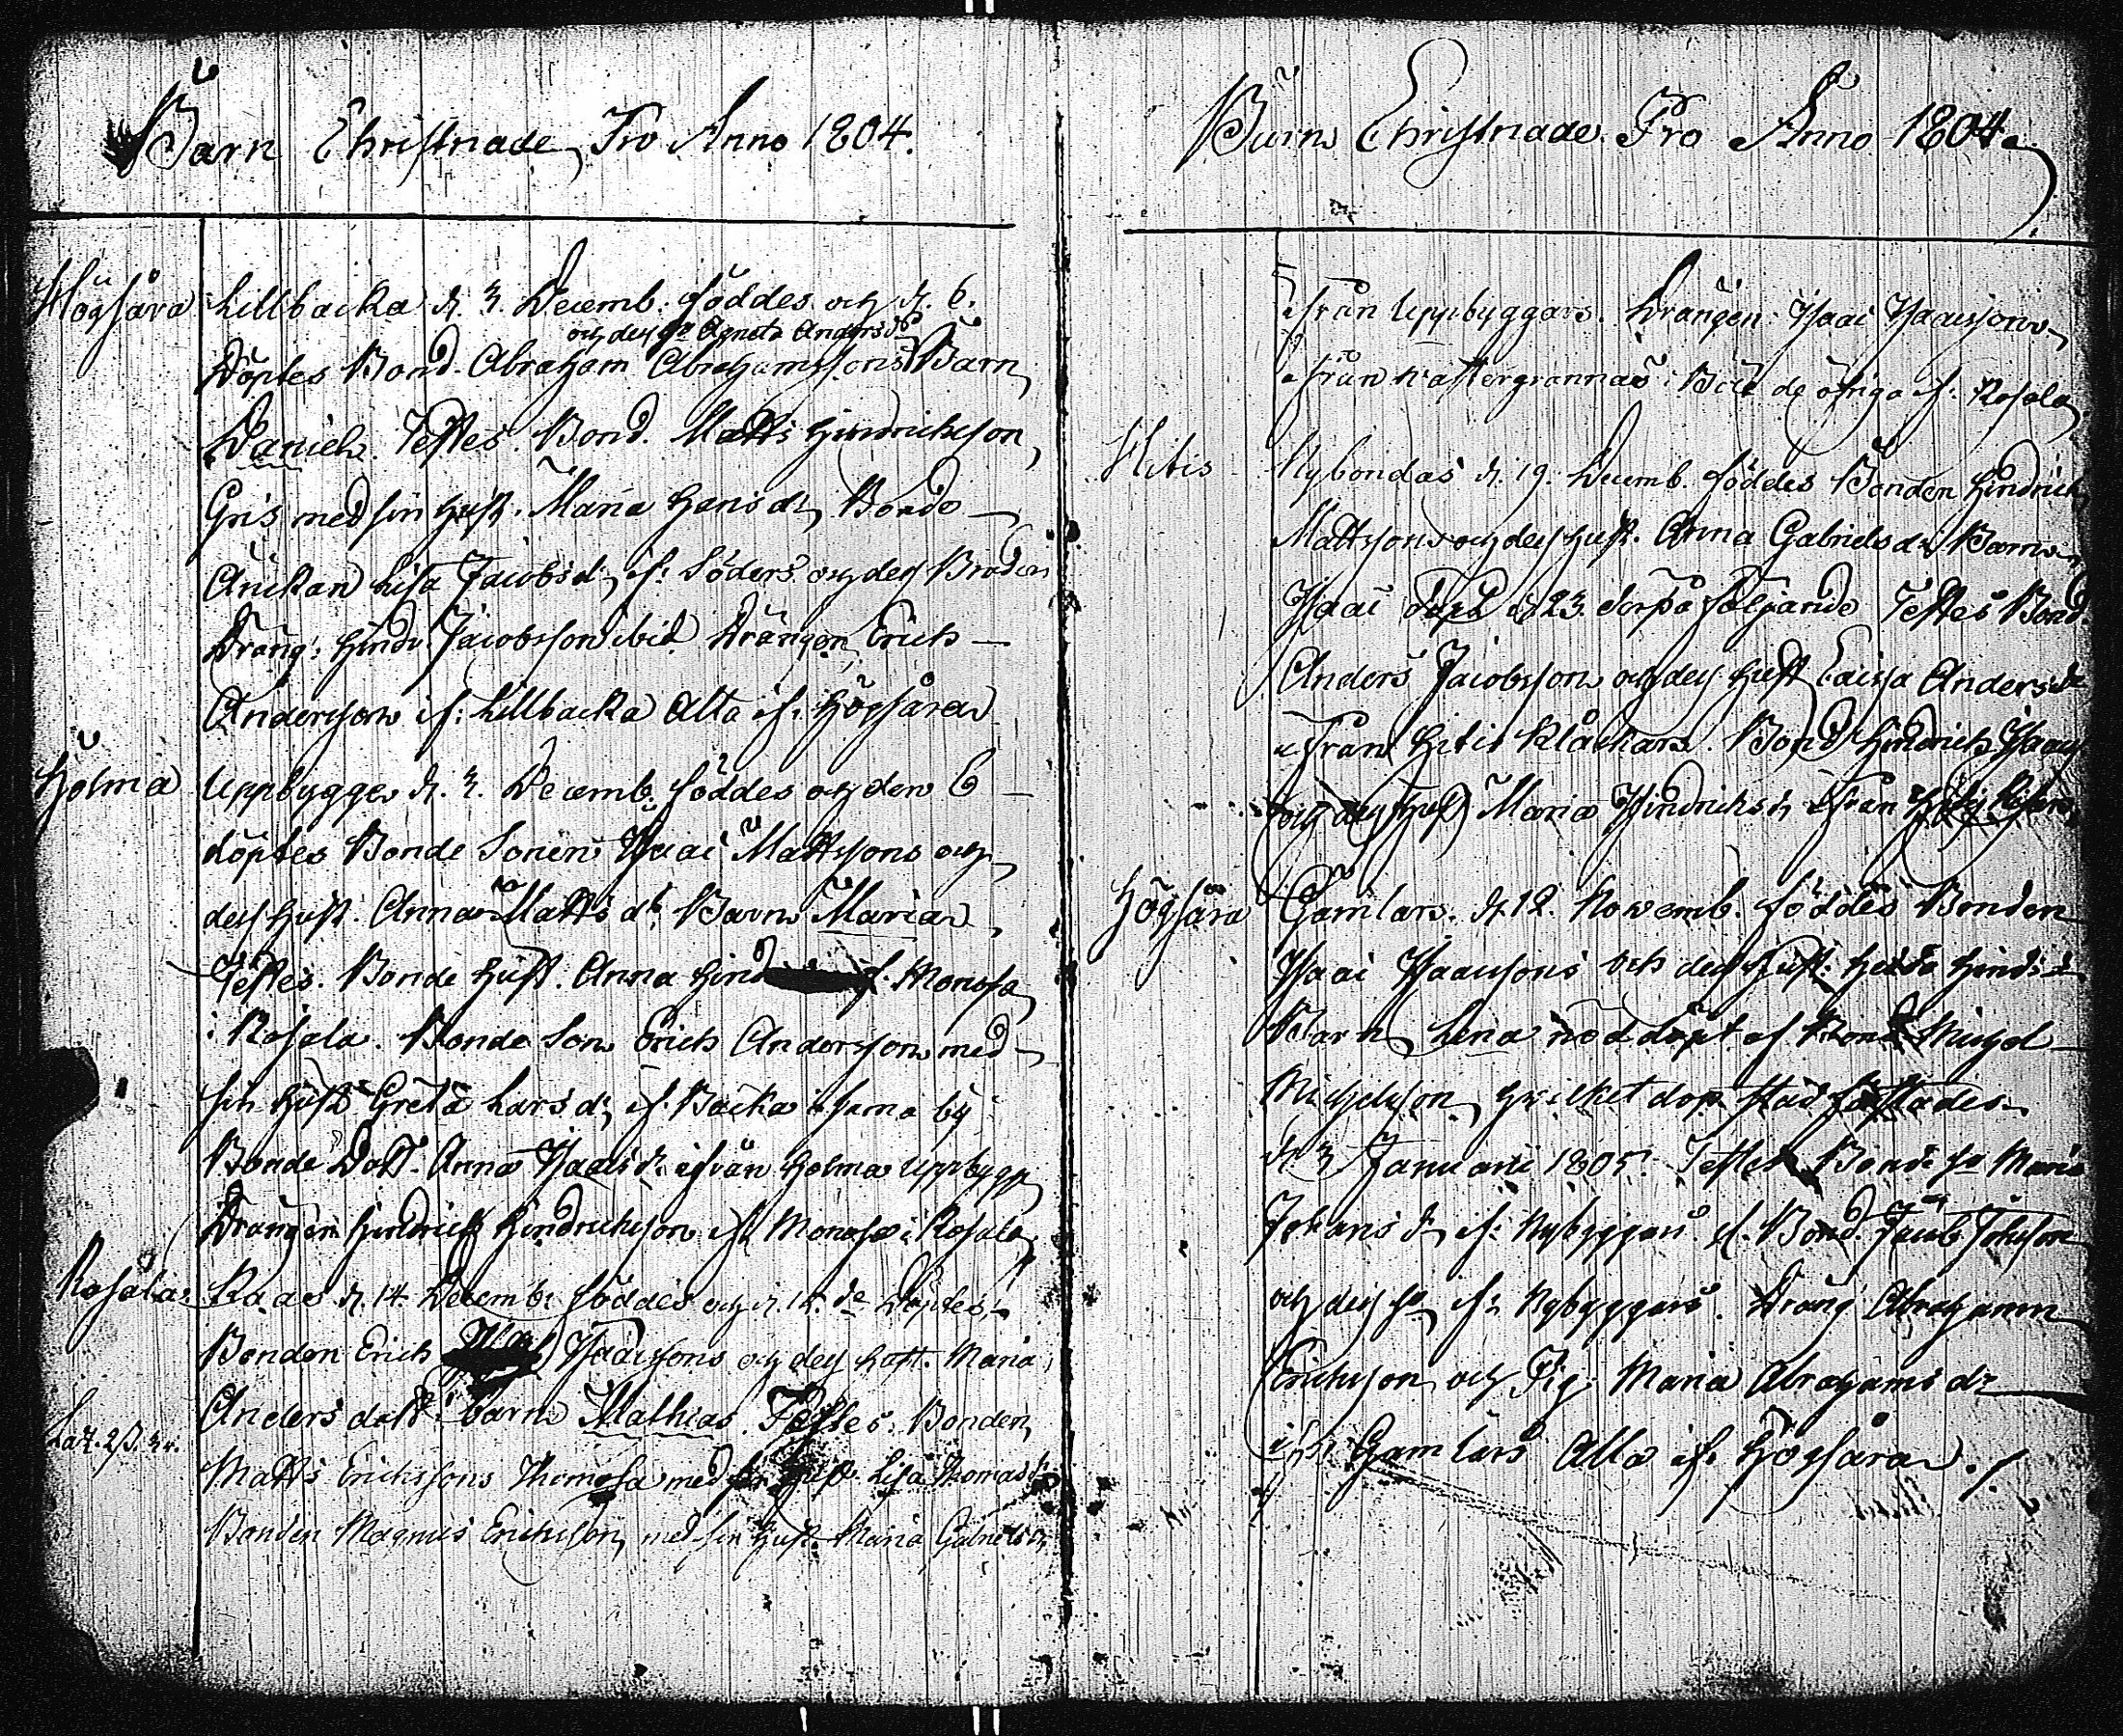 Barn Christnade Pro Anno 1804.
Högsåra Lillbacka d. 3. Decemb. föddes och d. 6.
och dess ho Agneta Andersdr
Döptes Bond. Abraham Abrahamssons Barn
Daniel. Testes. Bond. Matts Hindrichsson
Gris med sin hust. Maria Hansdr, Bonde
Änckan Lisa Jacobsdr, if: Söders och dess Broder
Dräng: Hindr. Jacobsson ibid. Drängen Erich
Andersson if: Lillbacka Alla if: Högsåra
Holma Uppbygge d. 3. Decemb. föddes och den 6
döptes Bonde Sonens Isaac Mattssons och
dess hust. Anna Matts dr. Barn Maria
Testes. Bonde hust. Anna Hind if. Monssa
i Rosala. Bonde Son Erich Andersson med
sin hust Greta Lars dr, if. Backa i sama by
Bonde Dott. Anna Isaacs dr. ifrån Holma uppbygge
Drängen Hindrich Hindrichsson if. Monssa i Rosala
Rosala. d. 14. Decemb: föddes och d. 16. de Döptes
Bonden Erich Isaacssons och dess hust. Maria
Anders dott: barn Mathias. Testes: Bonden
Lat. 2 f. 3 v.
Matts Erichssons Thomossa med sin hust. Lisa Thomasdr
Bonden Magnus Erichsson, med sin hust. Maria Gabrielsdr,
Barn Christnade Pro Anno 1804.
ifrån Uppbyggars. Drängen Isaac Isaacsson
ifrån Wästergrannas. de öfriga if: Rosala
Hitis Nybondas d. 19. Decemb. föddes Bonden Hindrich
Mattssons och dess hust. Anna Gabriels dr. Barn
Isaac döpt d. 23 derpå följande Testes Bond.
Anders Jacobsson och dess hust Caisa Andersdr
ifrån Hitis Klåckars. Bond Hindrich Isaacs
och dess hust Maria Hindrichs dr, ifrån
Högsåra Gamlars. d. 12. Novemb. föddes Bonden
Isaac Isaacssons och dess hust: Hedda Hindrsdr
Barn Lena nöddöpt af Bond Michel
Michelsson, hvilket dop stadfästades
d. 3 Januarii 1805. Testes Bonde ho Maria
Johans dr, if: Nybyggars. if. Bond. Jacob Johsson
och dess ho, if: Nybyggars. Dräng Abraham
Erichsson och Pig. Maria Abrahams dr
ifr Gamlars Alla if. Högsåra.